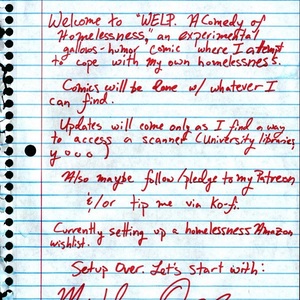 Welcome to "WELP. A Comedy of
Homelessness," an experimental
gallows-humor comic where I attempt
to cope with my own homelessness.
Comics will be done w/ whatever I
can find.
Updates will come only as I find a way
to access a scanner (University libraries
yooo)
Also maybe follow/pledge to my Patreon
&/or tip me via Ko-fi.
Currently setting up a homelessness Amazon
wishlist.
Setup Over. Let's start with: